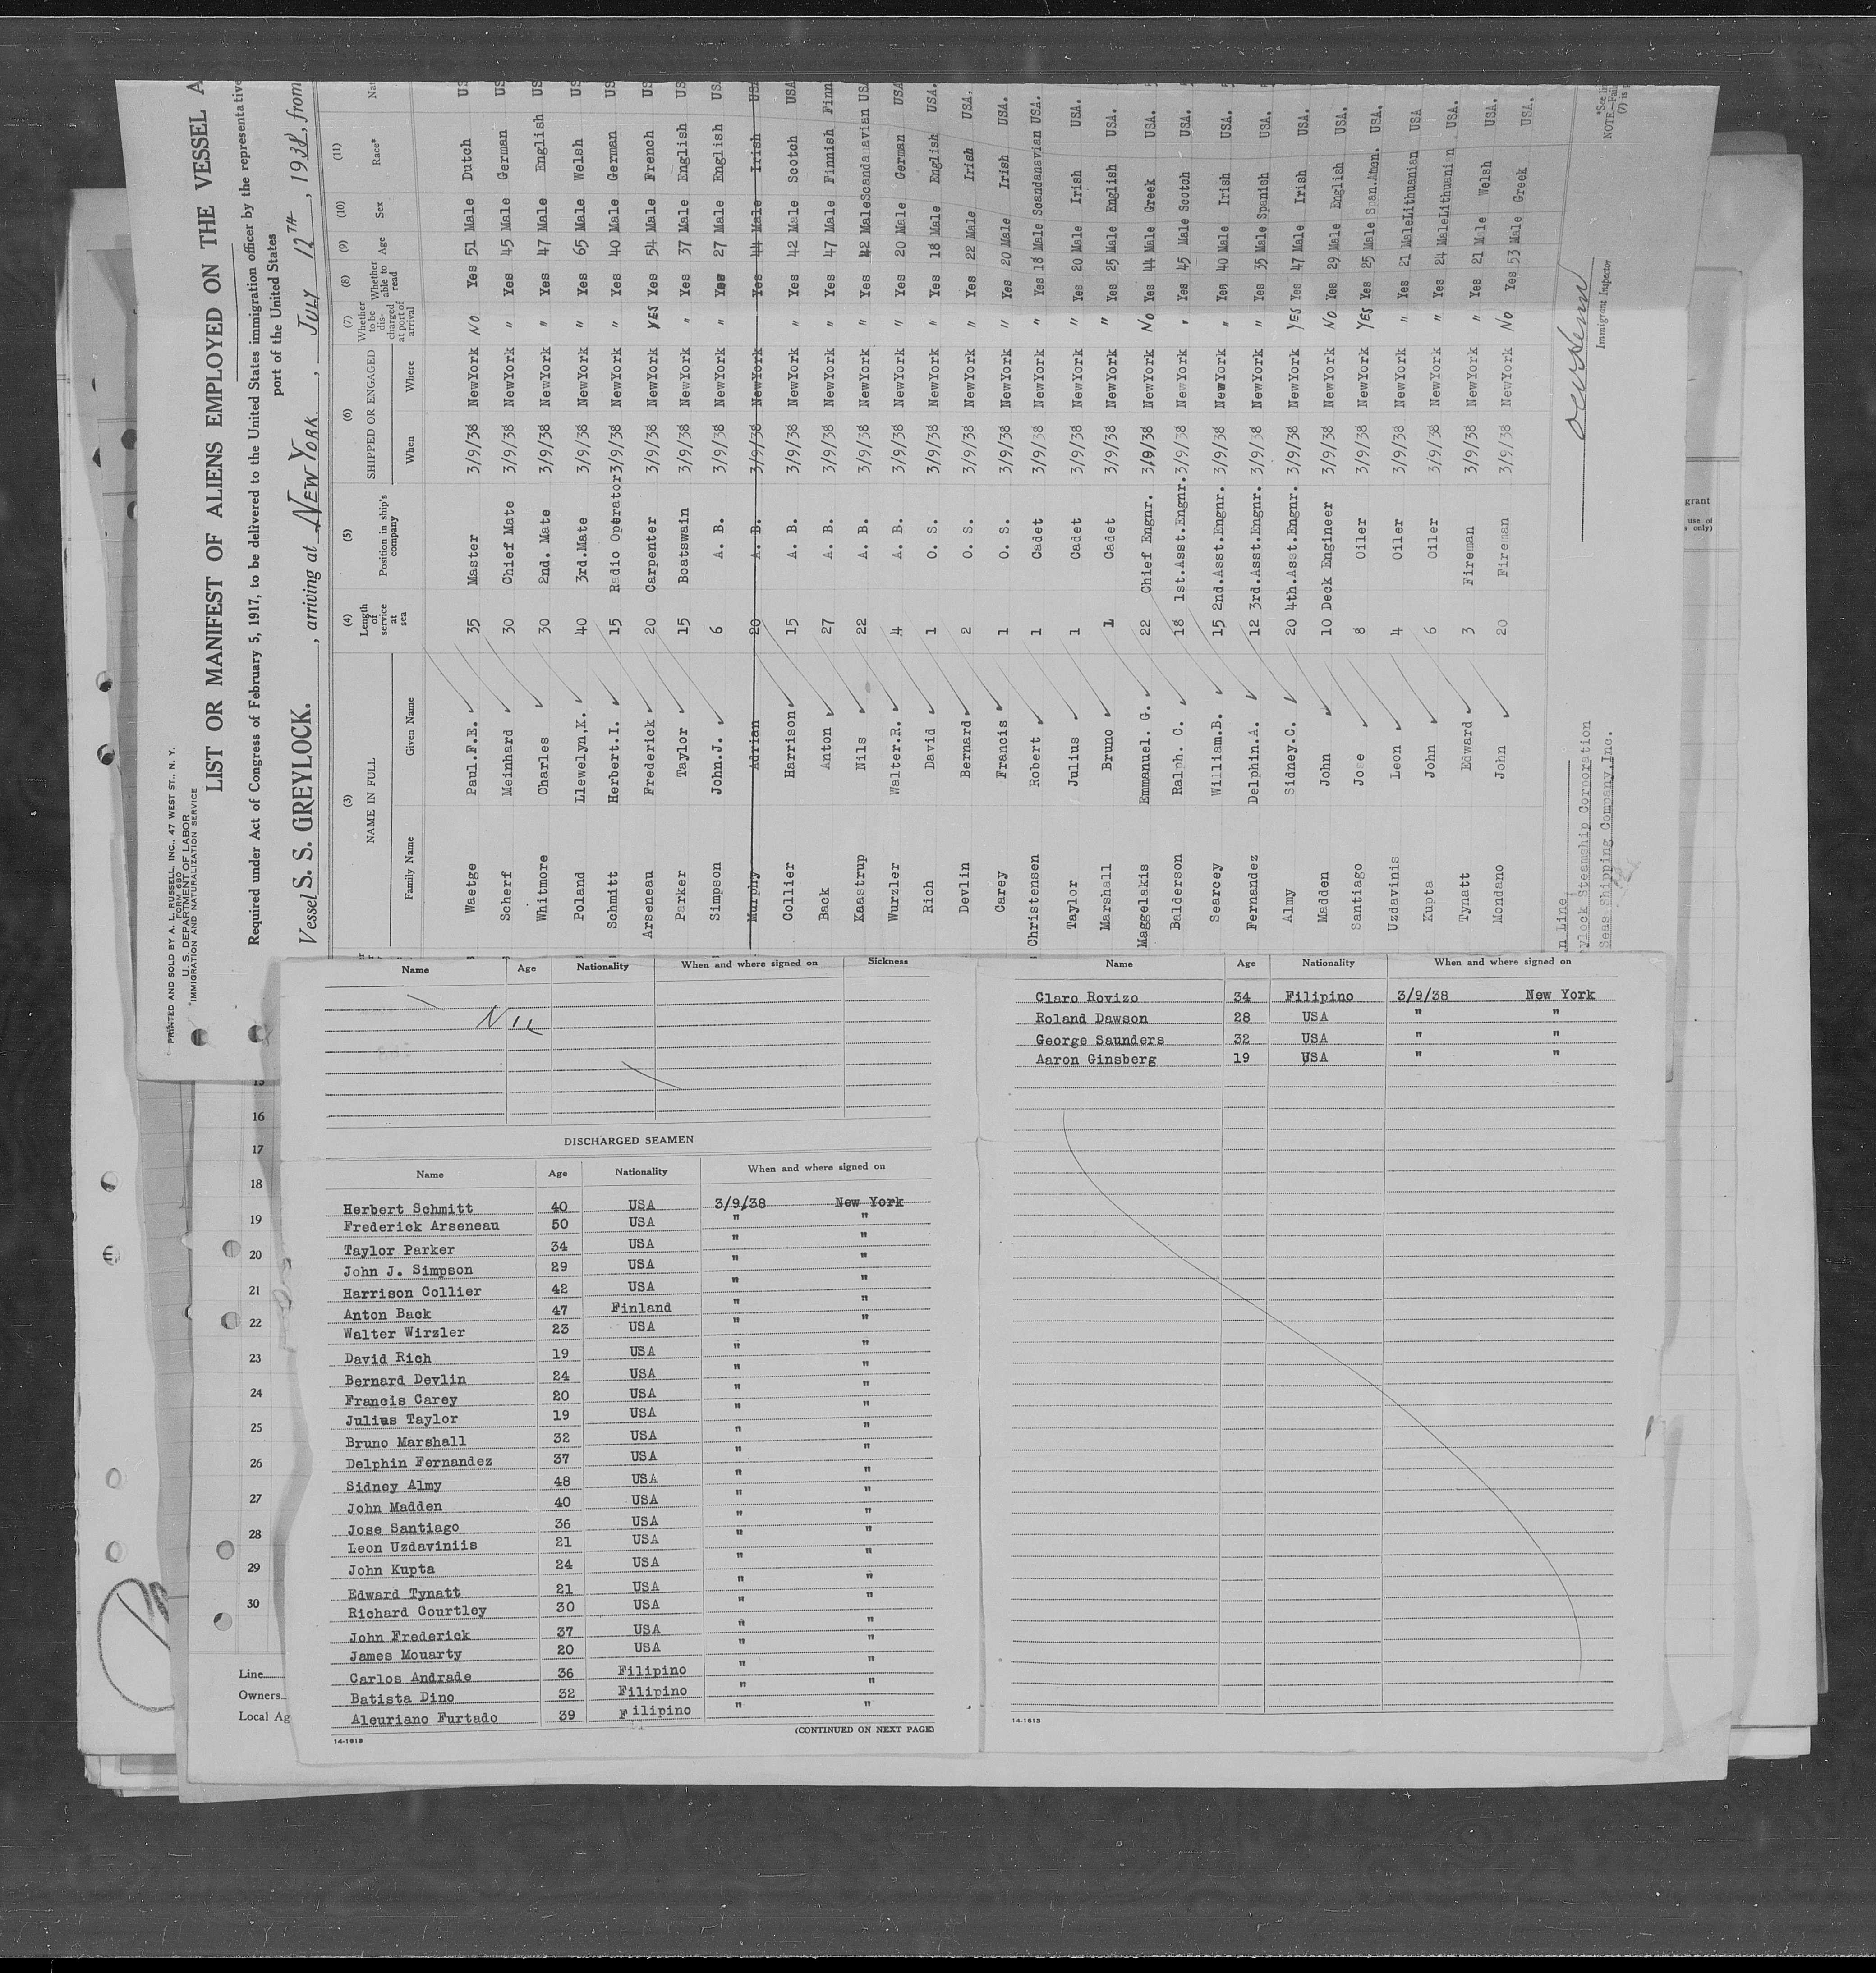 PRINTED AND SOLD BY A. L. RUSSELL, INC., 47 WEST ST., N. Y.
FORM 680
U. S. DEPARTMENT OF LABOR
IMMIGRATION AND NATURALIZATION SERVICE
LIST OR MANIFEST OF ALIENS EMPLOYED ON THE VESSEL A
Required under Act of Congress of February 5, 1917, to be delivered to the United States immigration officer by the representative
port of the United States
Vessel S. S. GREYLOCK. , arriving at NEW YORK , JULY 12TH , 1938, from
(3) (4) (5) (6) (7) (8) (9) (10) (11)
NAME IN FULL Length of service at sea Position in ship's company SHIPPED OR ENGAGED Whether to be discharged at port of arrival Whether able to read Age Sex Race* Nat
Family Name Given Name When Where
Waetge Paul.F.E. 35 Master 3/9/38 NewYork NO Yes 51 Male Dutch US
Scherf Meinhard 30 Chief Mate 3/9/38 NewYork " Yes 45 Male German US
Whitmore Charles 30 2nd. Mate 3/9/38 NewYork " Yes 47 Male English US
Poland Llewelyn,K. 40 3rd.Mate 3/9/38 NewYork " Yes 65 Male Welsh US
Schmitt Herbert.I. 15 Radio Operator 3/9/38 NewYork " Yes 40 Male German US
Arseneau Frederick 20 Carpenter 3/9/38 NewYork YES Yes 54 Male French US
Parker Taylor 15 Boatswain 3/9/38 NewYork " Yes 37 Male English US
Simpson John.J. 6 A. B. 3/9/38 NewYork " Yes 27 Male English USA
Murphy Adrian 20 A. B. 3/9/38 NewYork Yes 44 Male Irish USA
Collier Harrison 15 A. B. 3/9/38 NewYork " Yes 42 Male Scotch USA
Back Anton 27 A. B. 3/9/38 NewYork " Yes 47 Male Finnish Finn
Kaastrup Nils 22 A. B. 3/9/38 NewYork " Yes 42 Male Scandanavian USA
Wurzler Walter.R. 4 A. B. 3/9/38 NewYork " Yes 20 Male German USA
Rich David 1 O. S. 3/9/38 NewYork " Yes 18 Male English USA.
Devlin Bernard 2 O. S. 3/9/38 NewYork " Yes 22 Male Irish USA.
Carey Francis 1 O. S. 3/9/38 NewYork " Yes 20 Male Irish USA.
Christensen Robert 1 Cadet 3/9/38 NewYork " Yes 18 Male Scandanavian USA.
Taylor Julius 1 Cadet 3/9/38 NewYork " Yes 20 Male Irish USA.
Marshall Bruno 1 Cadet 3/9/38 NewYork " Yes 25 Male English USA.
Maggelakis Emmanuel. G. 22 Chief Engnr. 3/9/38 NewYork No Yes 44 Male Greek USA.
Balderson Ralph. C. 18 1st.Asst.Engnr. 3/9/38 NewYork " Yes 45 Male Scotch USA.
Searcey William.B. 15 2nd.Asst.Engnr. 3/9/38 NewYork " Yes 40 Male Irish USA.
Fernandez Delphin.A. 12 3rd.Asst.Engnr. 3/9/38 NewYork " Yes 35 Male Spanish USA.
Almy Sidney.C. 20 4th.Asst.Engnr. 3/9/38 NewYork YES Yes 47 Male Irish USA.
Madden John 10 Deck Engineer 3/9/38 NewYork NO Yes 29 Male English USA.
Santiago Jose 8 Oiler 3/9/38 NewYork YES Yes 25 Male Span.Amon. USA.
Uzdavinis Leon 4 Oiler 3/9/38 NewYork " Yes 21 Male Lithuanian USA
Kupta John 6 Oiler 3/9/38 NewYork " Yes 24 Male Lithuanian USA.
Tynatt Edward 3 Fireman 3/9/38 NewYork " Yes 21 Male Welsh USA.
Mondano John 20 Fireman 3/9/38 NewYork No Yes 53 Male Greek USA.
n Line,
ylock Steamship Corporation
Seas Shipping Company,Inc.
Immigrant Inspector
*See li
NOTE.—Fail
(7) is p
Name Age Nationality When and where signed on Sickness
NIL
DISCHARGED SEAMEN
Name Age Nationality When and where signed on
Herbert Schmitt 40 USA 3/9/38 New York
Frederick Arseneau 50 USA " "
Taylor Parker 34 USA " "
John J. Simpson 29 USA " "
Harrison Collier 42 USA " "
Anton Back 47 Finland " "
Walter Wirzler 23 USA " "
David Rich 19 USA " "
Bernard Devlin 24 USA " "
Francis Carey 20 USA " "
Julius Taylor 19 USA " "
Bruno Marshall 32 USA " "
Delphin Fernandez 37 USA " "
Sidney Almy 48 USA " "
John Madden 40 USA " "
Jose Santiago 36 USA " "
Leon Uzdaviniis 21 USA " "
John Kupta 24 USA " "
Edward Tynatt 21 USA " "
Richard Courtley 30 USA " "
John Frederick 37 USA " "
James Mouarty 20 USA " "
Carlos Andrade 36 Filipino " "
Batista Dino 32 Filipino " "
Aleuriano Furtado 39 Filipino " "
(CONTINUED ON NEXT PAGE)
14-1613
Name Age Nationality When and where signed on
Claro Rovizo 34 Filipino 3/9/38 New York
Roland Dawson 28 USA " "
George Saunders 32 USA " "
Aaron Ginsberg 19 USA " "
14-1613
15
16
17
18
19
20
21
22
23
24
25
26
27
28
29
30
Line
Owners
Local Ag
grant
use of
s only)